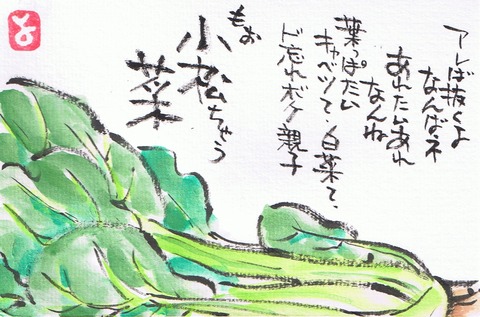 アレば抜くよ
なんばネ
あれたいあれ
なんね
葉っぱたい
キャベツて、白菜て、
ド忘れボケ親子
もぉ
小松ちゃう
菜
と